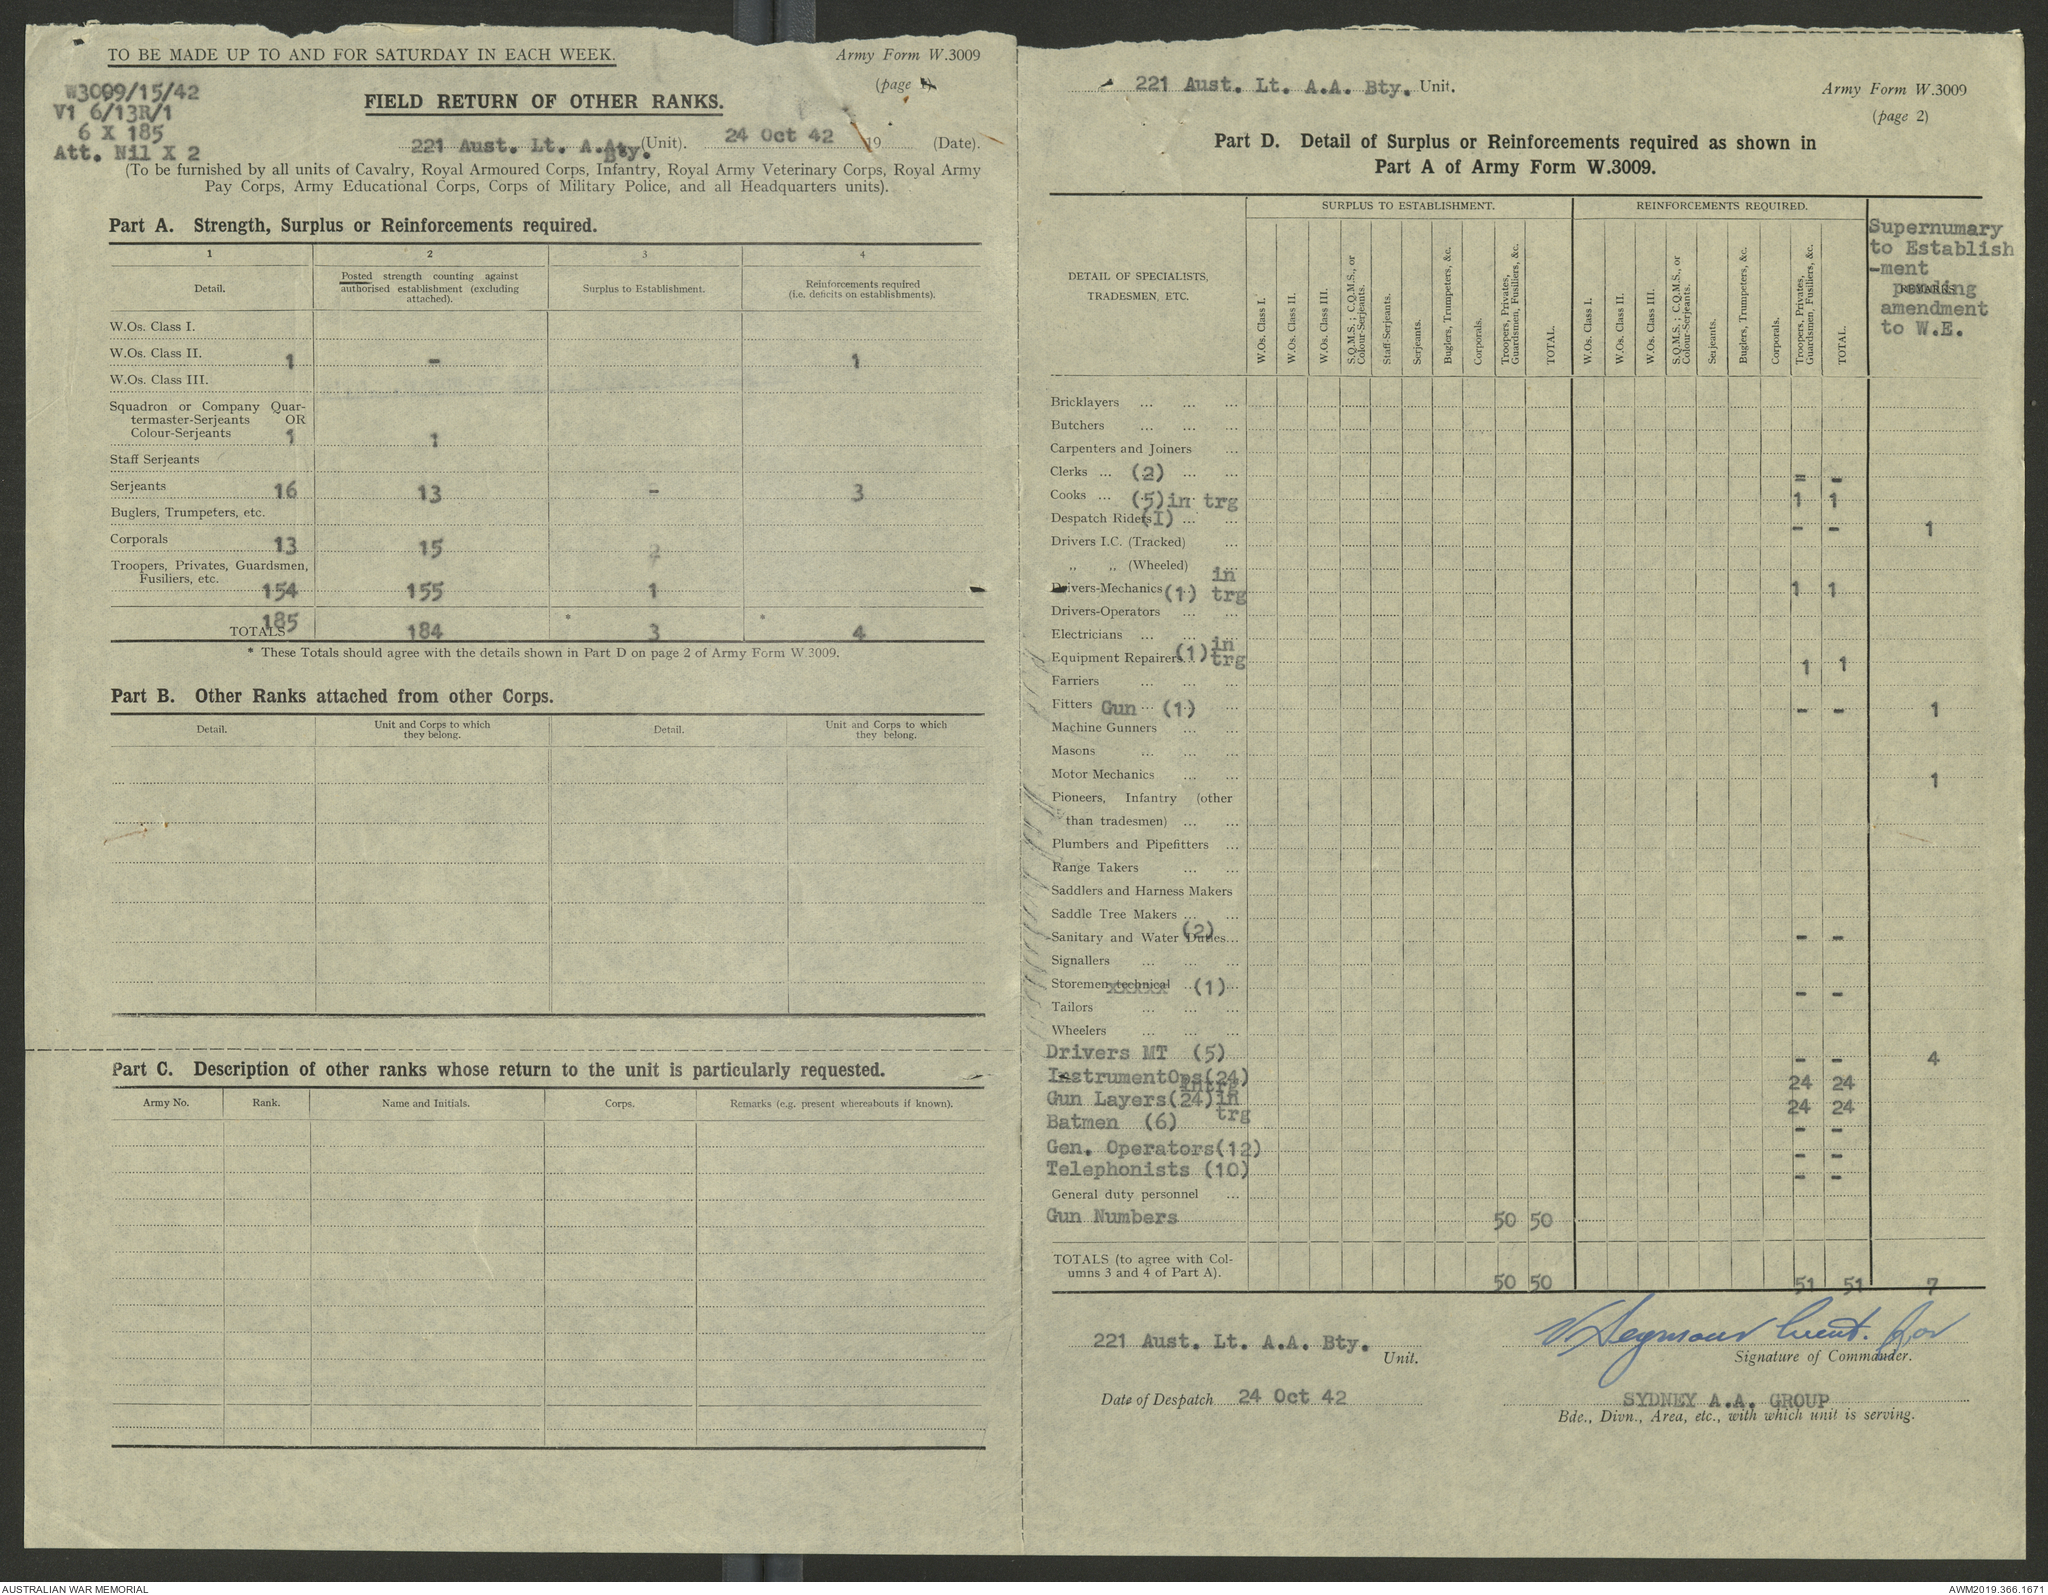 TO BE MADE UP TO AND FOR SATURDAY IN EACH WEEK.
Army Form W.3009
(page 1).
W3009/15/42
V1 6/13R/1
6 X 185
Att. Nil X 2
FIELD RETURN OF OTHER RANKS.
221 Aust. Lt. A.A. Bty. (Unit). 24 Oct 42 19 (Date).
(To be furnished by all units of Cavalry, Royal Armoured Corps, Infantry, Royal Army Veterinary Corps, Royal Army
Pay Corps, Army Educational Corps, Corps of Military Police, and all Headquarters units).
Part A. Strength, Surplus or Reinforcements required.
1 2 3 4
Detail.
Posted strength counting against
authorised establishment (excluding
attached).
Surplus to Establishment.
Reinforcements required
(i.e. deficits on establishments).
W.Os. Class I.
W.Os. Class II. 1 - 1
W.Os. Class III.
Squadron or Company Quar-
termaster-Serjeants OR
Colour-Serjeants 1 1
Staff Serjeants
Serjeants 16 13 - 3
Buglers, Trumpeters, etc.
Corporals 13 15 2
Troopers, Privates, Guardsmen,
Fusiliers, etc.
154 155 1
TOTALS 185 184 3 4
* These Totals should agree with the details shown in Part D on page 2 of Army Form W.3009.
Part B. Other Ranks attached from other Corps.
Detail.
Unit and Corps to which
they belong.
Detail.
Unit and Corps to which
they belong.
Part C. Description of other ranks whose return to the unit is particularly requested.
Army No. Rank. Name and Initials. Corps. Remarks (e.g. present whereabouts if known).
221 Aust. Lt. A.A. Bty. Unit.
Army Form W.3009
(page 2)
Part D. Detail of Surplus or Reinforcements required as shown in
Part A of Army Form W.3009.
DETAIL OF SPECIALISTS,
TRADESMEN, ETC.
SURPLUS TO ESTABLISHMENT.
W.Os. Class I.
W.Os. Class II.
W.Os. Class III.
S.Q.M.S.; C.Q.M.S., or
Colour-Serjeants.
Staff-Serjeants.
Serjeants.
Buglers, Trumpeters, &c.
Corporals.
Troopers, Privates,
Guardsmen, Fusiliers, &c.
TOTAL.
REINFORCEMENTS REQUIRED.
W.Os. Class I.
W.Os. Class II.
W.Os. Class III.
S.Q.M.S.; C.Q.M.S., or
Colour-Serjeants.
Serjeants.
Buglers, Trumpeters, &c.
Corporals.
Troopers, Privates,
Guardsmen, Fusiliers, &c.
TOTAL.
REMARKS.
Supernumary
to Establish
-ment
pending
amendment
to W.E.
Bricklayers ... ... ...
Butchers ... ... ...
Carpenters and Joiners ...
Clerks ... (2) ... ... = -
Cooks ... (5)in trg 1 1
Despatch Riders(I) ... ... - - 1
Drivers I.C. (Tracked) ...
,, ,, (Wheeled) ...
Drivers-Mechanics (1) in trg 1 1
Drivers-Operators ... ...
Electricians ... ... ...
Equipment Repairers (1) in trg 1 1
Farriers ... ... ...
Fitters Gun ... (1) ... - - 1
Machine Gunners ... ...
Masons ... ... ...
Motor Mechanics ... ... 1
Pioneers, Infantry (other
than tradesmen) ... ...
Plumbers and Pipefitters ...
Range Takers ... ...
Saddlers and Harness Makers
Saddle Tree Makers ... ...
Sanitary and Water Duties (2) ... - -
Signallers ... ... ...
Storemen technical ... (1) ... - -
Tailors ... ... ...
Wheelers ... ... ...
Drivers MT (5) - - 4
InstrumentOps(24) intrg 24 24
Gun Layers(24)in trg 24 24
Batmen (6) - -
Gen. Operators(12) - -
Telephonists (10) - -
General duty personnel ...
Gun Numbers 50 50
TOTALS (to agree with Col-
umns 3 and 4 of Part A). 50 50 51 51 7
221 Aust. Lt. A.A. Bty.
Unit.
Seymour Lieut. for
Signature of Commander.
Date of Despatch 24 Oct 42
SYDNEY A.A. GROUP
Bde., Divn., Area, etc., with which unit is serving.
AUSTRALIAN WAR MEMORIAL
AWM2019.366.1671